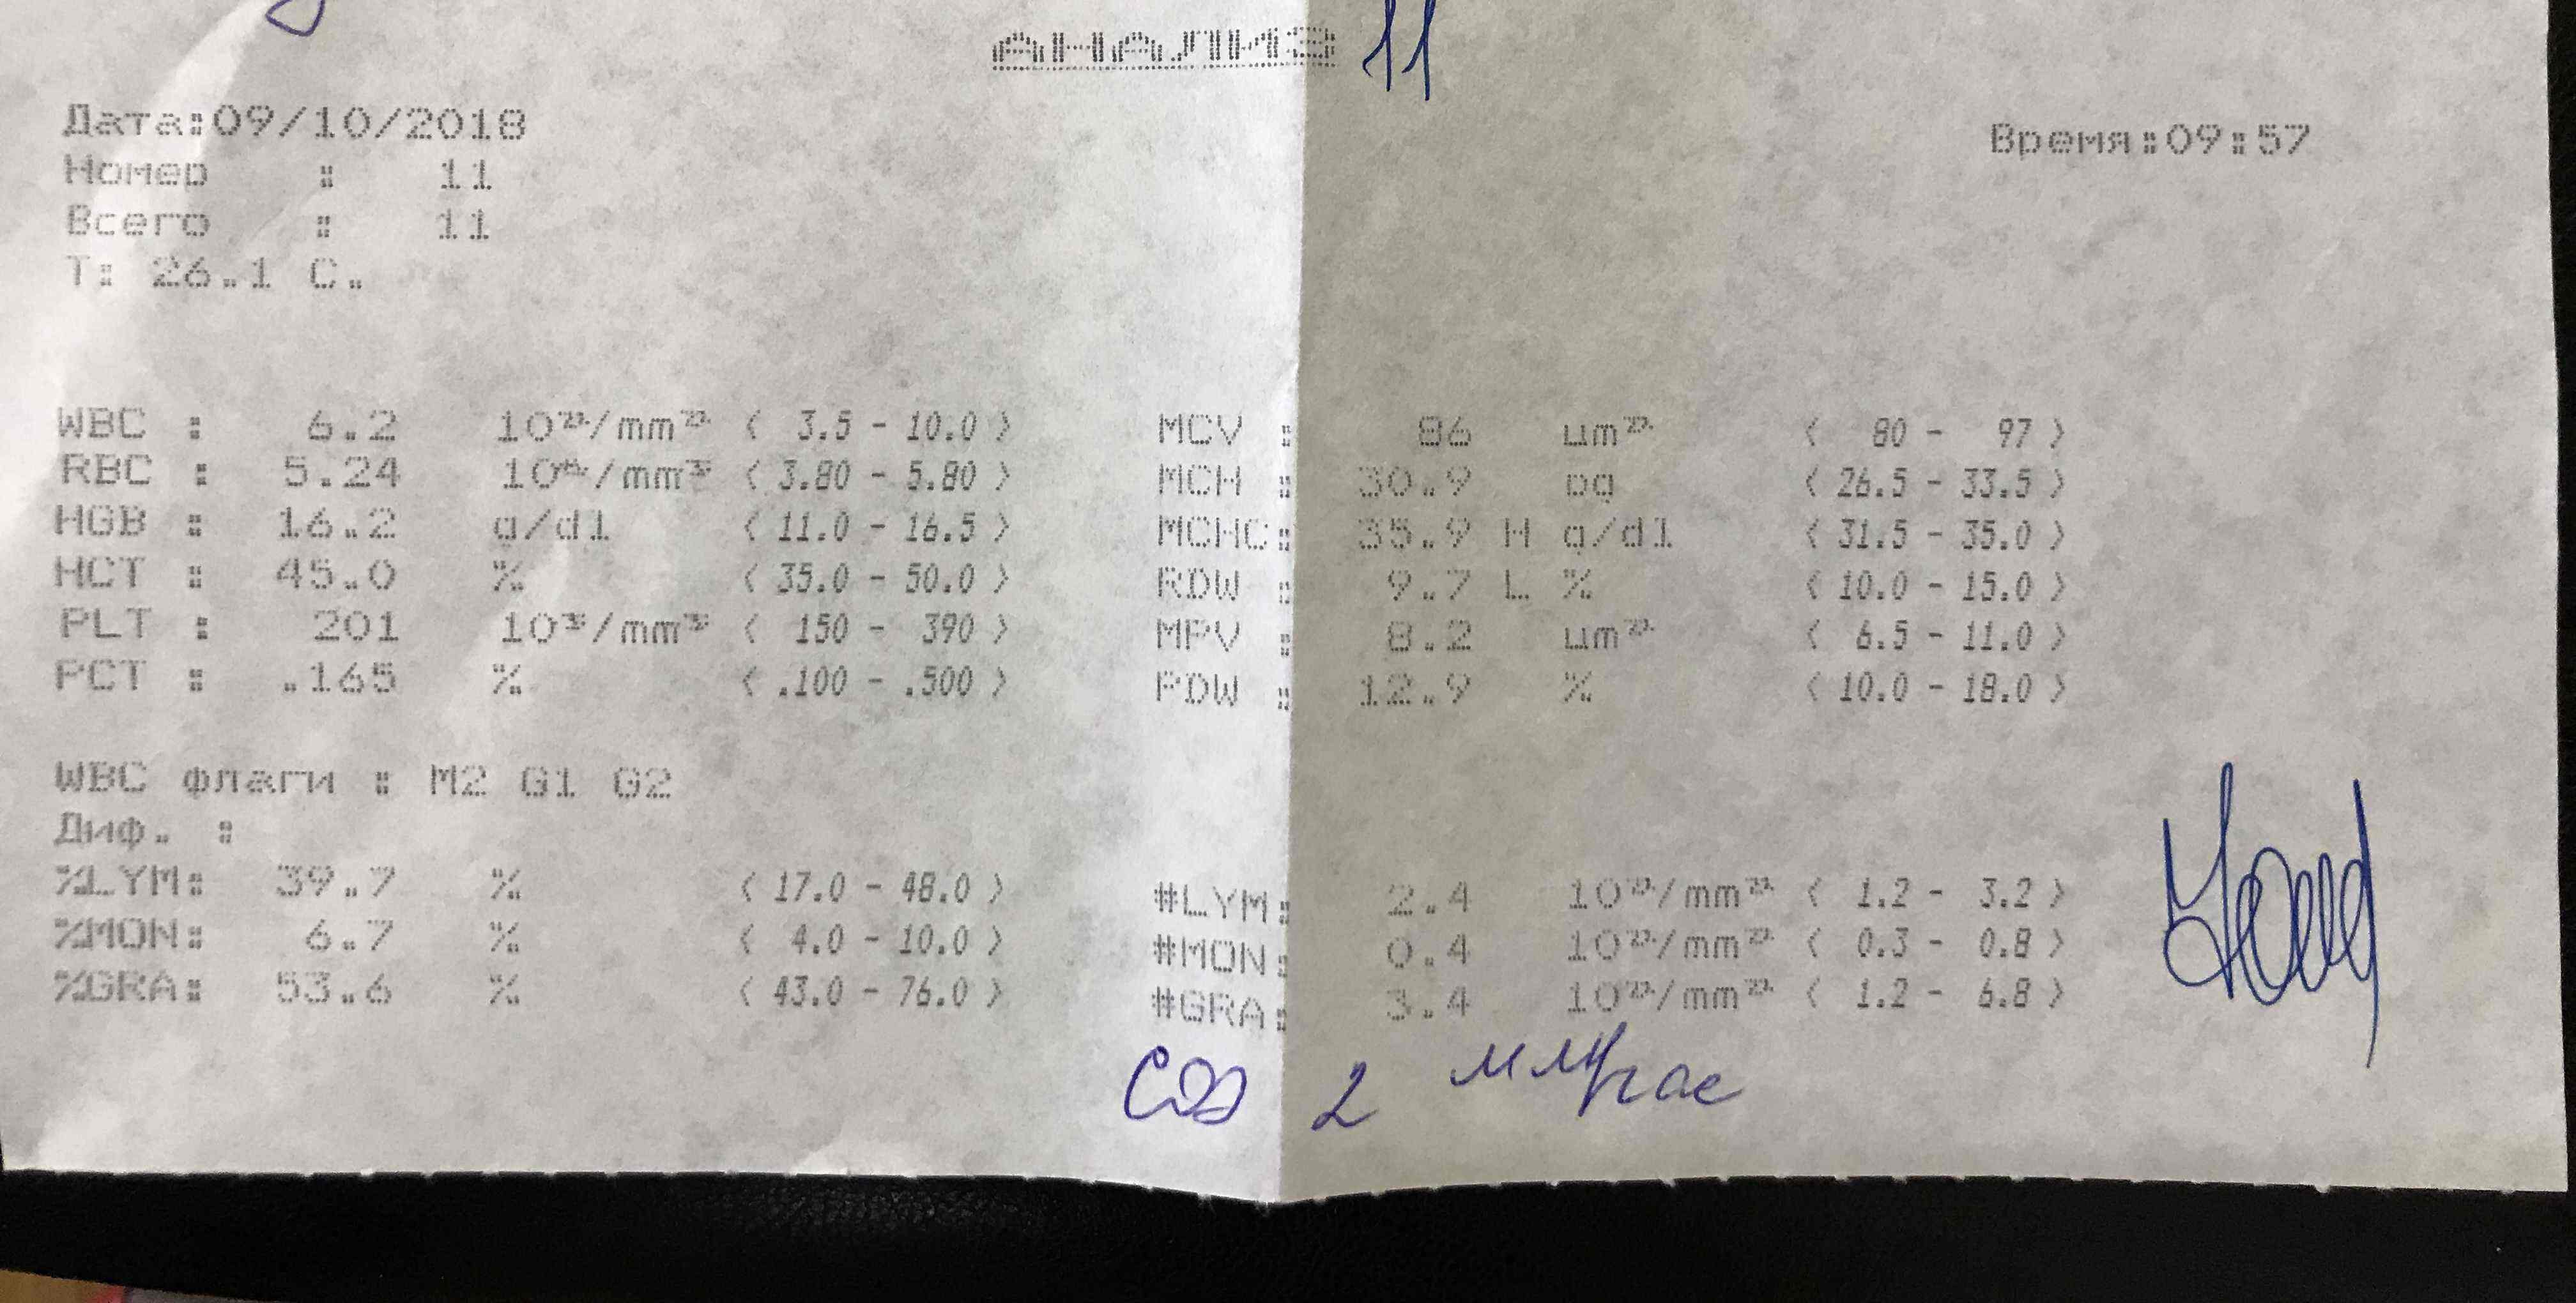 АНАЛИЗ 11
Дата:09/10/2018 Время:09:57
Номер : 11
Всего : 11
T: 26.1 C.
WBC : 6.2 10³/mm³ ( 3.5 - 10.0 ) MCV : 86 µm³ ( 80 - 97 )
RBC : 5.24 10⁶/mm³ ( 3.80 - 5.80 ) MCH : 30.9 pg ( 26.5 - 33.5 )
HGB : 16.2 g/dl ( 11.0 - 16.5 ) MCHC: 35.9 H g/dl ( 31.5 - 35.0 )
HCT : 45.0 % ( 35.0 - 50.0 ) RDW : 9.7 L % ( 10.0 - 15.0 )
PLT : 201 10³/mm³ ( 150 - 390 ) MPV : 8.2 µm³ ( 6.5 - 11.0 )
PCT : .165 % ( .100 - .500 ) PDW : 12.9 % ( 10.0 - 18.0 )
WBC флаги : M2 G1 G2
Диф. :
%LYM: 39.7 % ( 17.0 - 48.0 ) #LYM: 2.4 10³/mm³ ( 1.2 - 3.2 )
%MON: 6.7 % ( 4.0 - 10.0 ) #MON: 0.4 10³/mm³ ( 0.3 - 0.8 )
%GRA: 53.6 % ( 43.0 - 76.0 ) #GRA: 3.4 10³/mm³ ( 1.2 - 6.8 )
СОЭ 2 мм/час